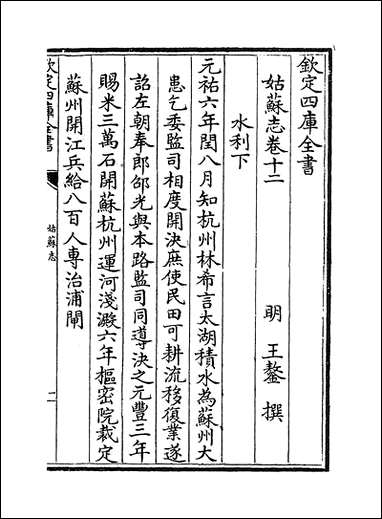 欽定四庫全書
姑蘇志卷十二
明 王鏊 撰
水利下
元祐六年閏八月知杭州林希言太湖積水為蘇州大
患乞委監司相度開決庶使民田可耕流移復業遂
詔左朝奉郎邰光與本路監司同導決之元豐三年
賜米三萬石開蘇杭州運河淺澱六年樞密院裁定
蘇州開江兵給八百人專治浦閘
欽定四庫全書
姑蘇志